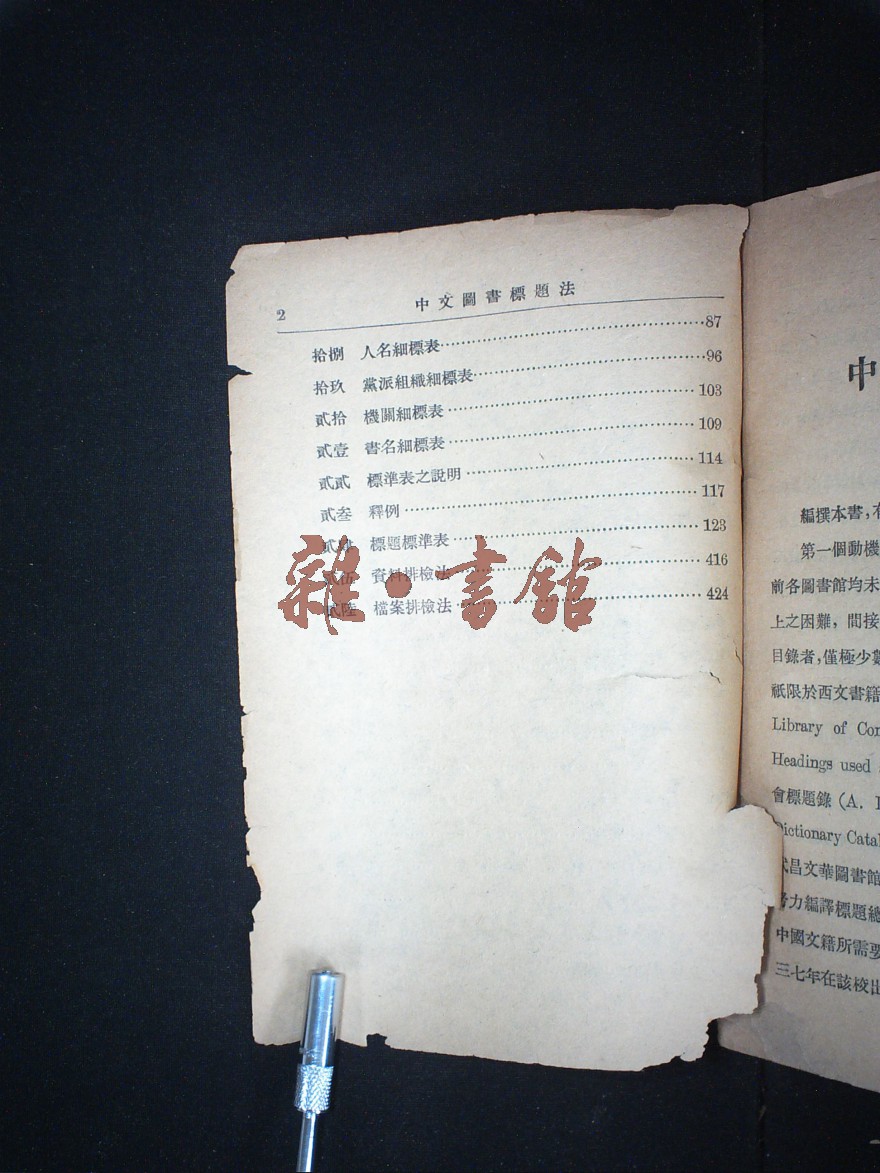 2 中文圖書標題法
拾捌 人名細標表……87
拾玖 黨派組織細標表……96
貳拾 機關細標表……103
貳壹 書名細標表……109
貳貳 標準表之說明……114
貳叁 釋例……117
貳肆 標題標準表……123
貳伍 資料排檢法……416
貳陸 檔案排檢法……424
雜·書館
中
編撰本書,
第一個動機
前各圖書館均未
上之困難,間接
目錄者,僅極少數
祇限於西文書籍
Library of Con
Headings used
會標題錄 (A.
Dictionary Catal
武昌文華圖書館
力編譯標題總
中國文籍所需要
三七年在該校出